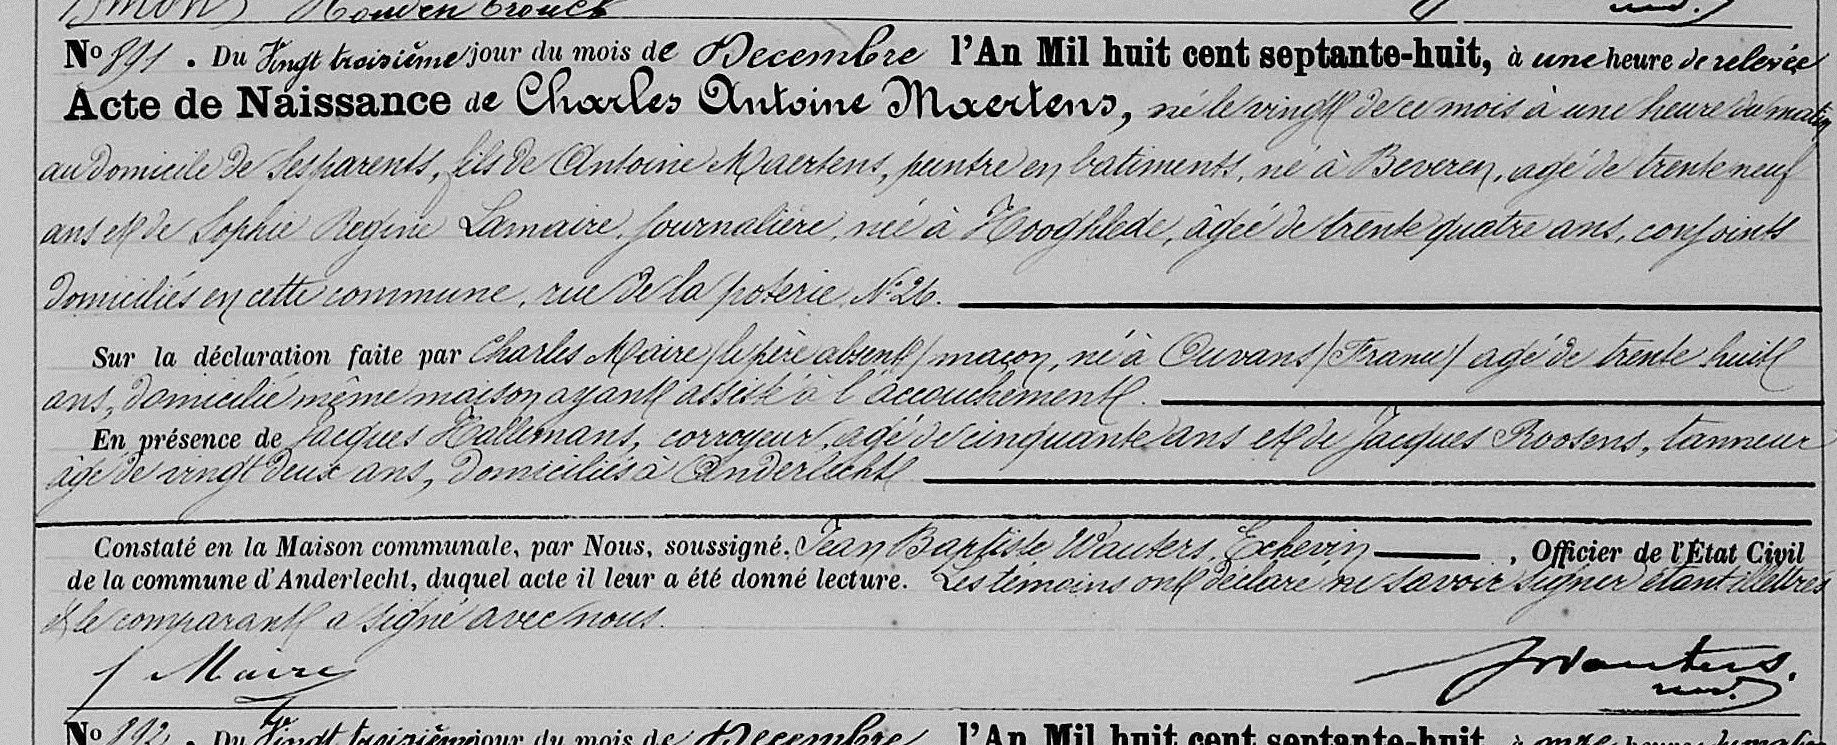 Simon Houden Brouck
No 891. Du Vingt troisième jour du mois de Decembre l'An Mil huit cent septante-huit, à une heure de relevée
Acte de Naissance de Charles Antoine Maertens, né le vingt de ce mois à une heure du matin
au domicile de ses parents, fils de Antoine Maertens, peintre en batiments, né à Beveren, agé de trente neuf
ans et de Sophie Regine Lamaire, journalière, née à Hooghlede, âgée de trente quatre ans, conjoints
domiciliés en cette commune, rue de la poterie, N° 26.
Sur la déclaration faite par Charles Maire (le père absent) maçon, né à Ouvans (France) agé de trente huit
ans, domicilié même maison ayant assisté à l'accouchement.
En présence de Jacques Hallemans, corroyeur, agé de cinquante ans et de Jacques Roosens, tanneur
âgé de vingt deux ans, domiciliés à Anderlecht
Constaté en la Maison communale, par Nous, soussigné, Jean Baptiste Wauters, Echevin, Officier de l'État Civil
de la commune d'Anderlecht, duquel acte il leur a été donné lecture. Les témoins ont déclaré ne savoir signer étant illettrés
et le comparant a signé avec nous.
Maire JWauters.
No 892. Du Vingt troisième jour du mois de Decembre l'An Mil huit cent septante-huit, à